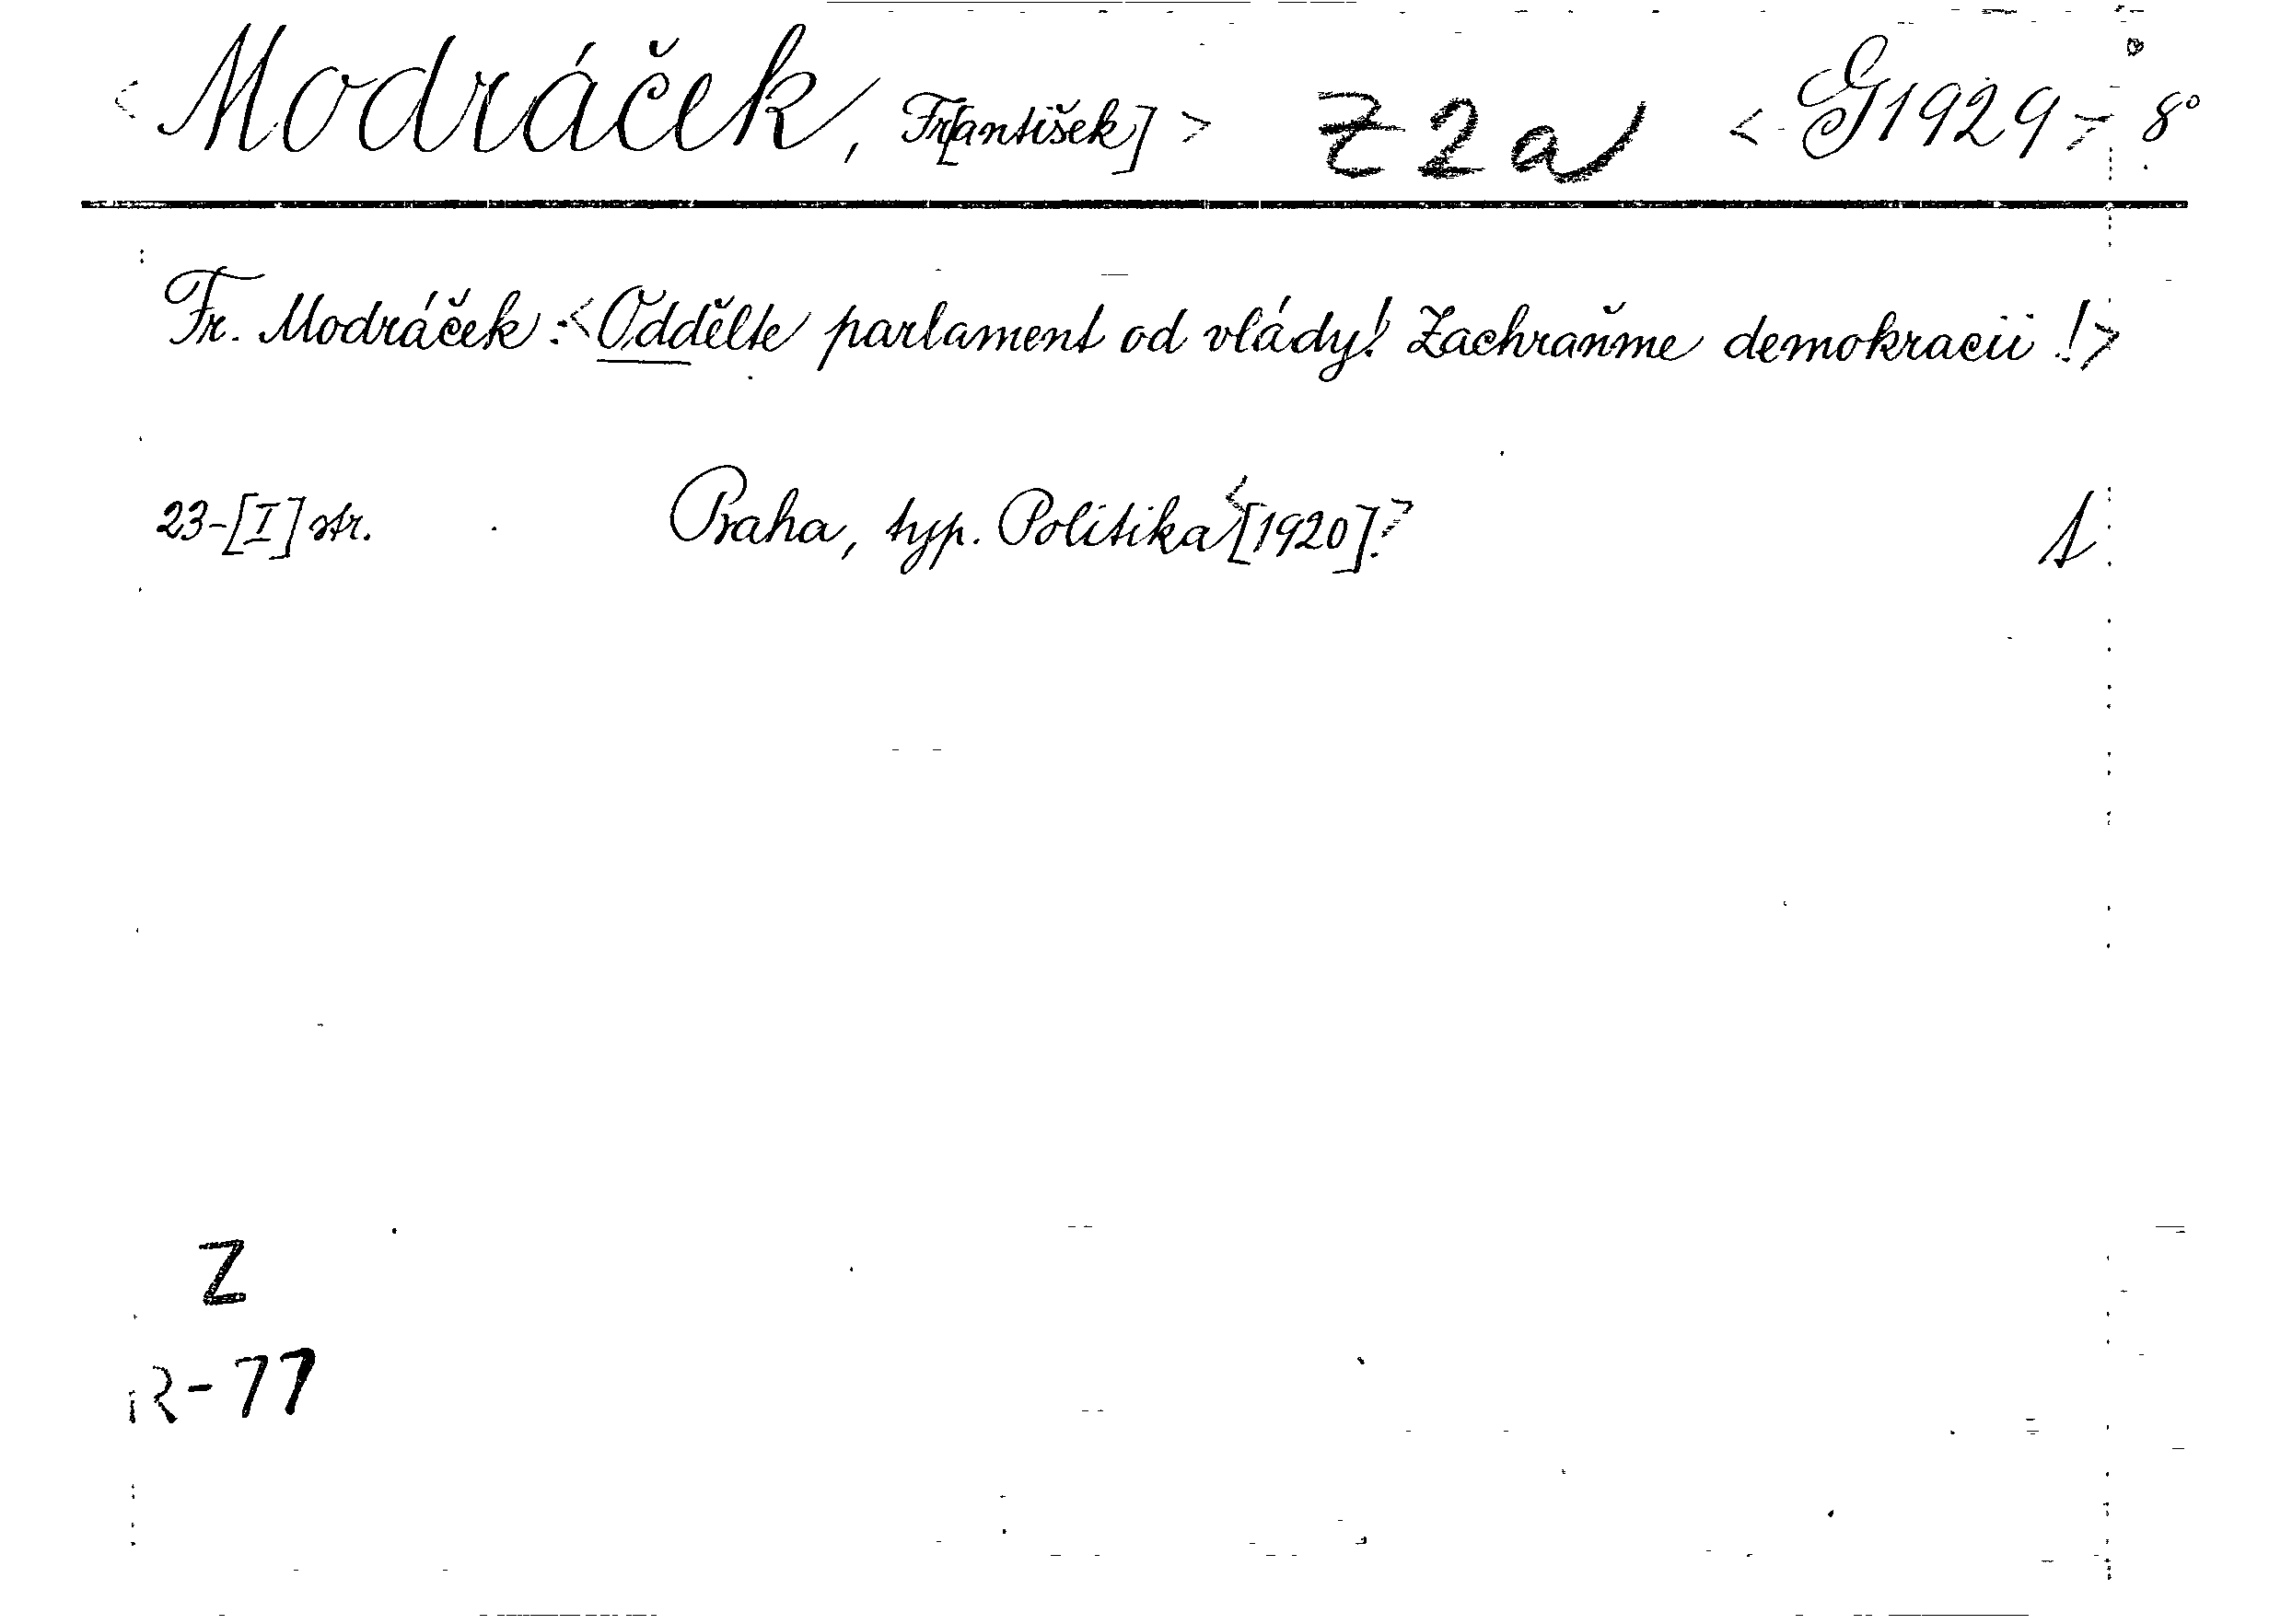 <Modráček, Fr[antišek]> Z2a <G1929> 8°
Fr. Modráček: <Oddělte parlament od vlády! Zachraňme demokracii!>
23-[I] str. Praha, typ. Politika <[1920].> 1
Z
R-77